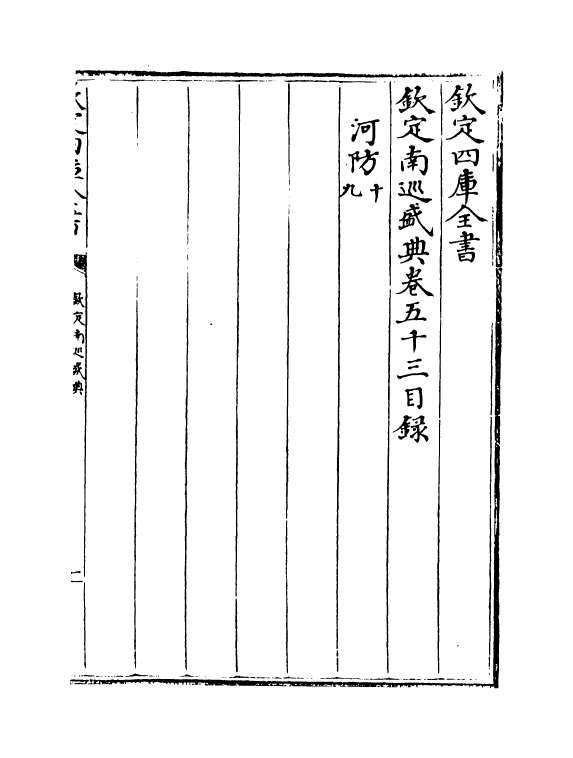 欽定四庫全書
欽定南巡盛典卷五十三目録
河防十九
欽定四庫全書
欽定南巡盛典
二